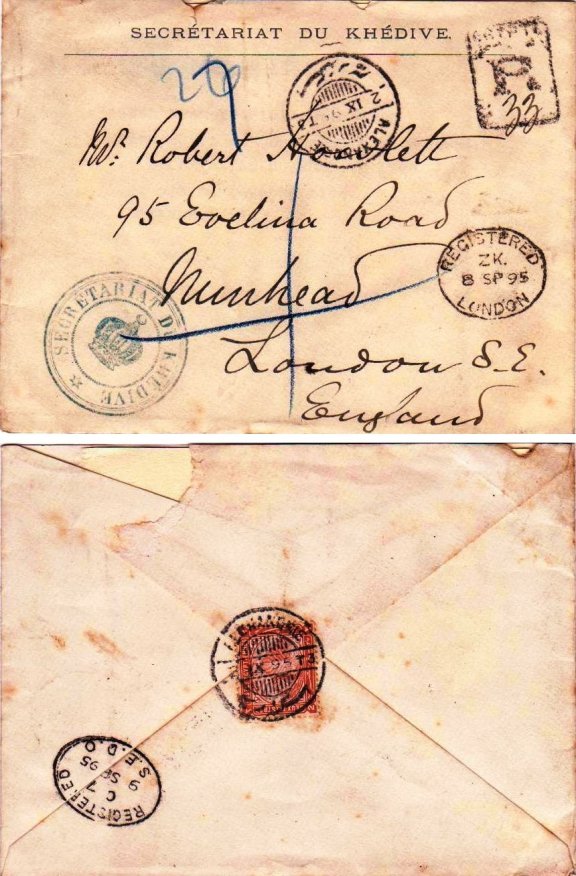 SECRÉTARIAT DU KHÉDIVE.
EGYPTE
R
33
2 IX 95 T3
ALEXANDRIE
Mr. Robert Howlett
95 Evelina Road
Nunhead
London S.E.
England
REGISTERED
ZK.
8 SP 95
LONDON
SECRETARIAT DU KHEDIVE
ALEXANDRIE
IX 95 T3
REGISTERED
C 7
9 SP 95
S.E.D.O